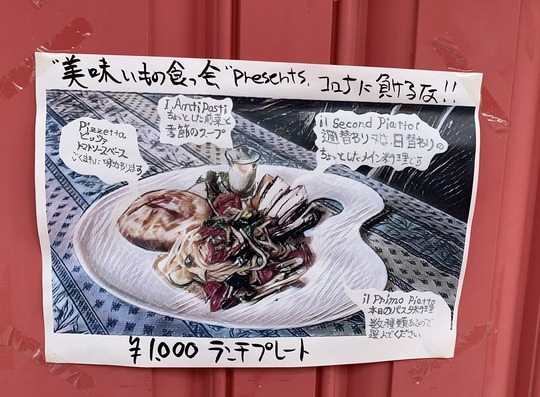 "美味いもの食っ会"presents. コロナに負けるな!!
Pizzetta
ピッツァ
トマトソースベース
i Antipasti
ちょっとした前菜と
季節のスープ
il Second Piatto
週替わり又は、日替わりの
ちょっとしたメイン料理です
il Primo Piatto
本日のパスタ料理
数種類あるので
選んでください
¥1,000 ランチプレート